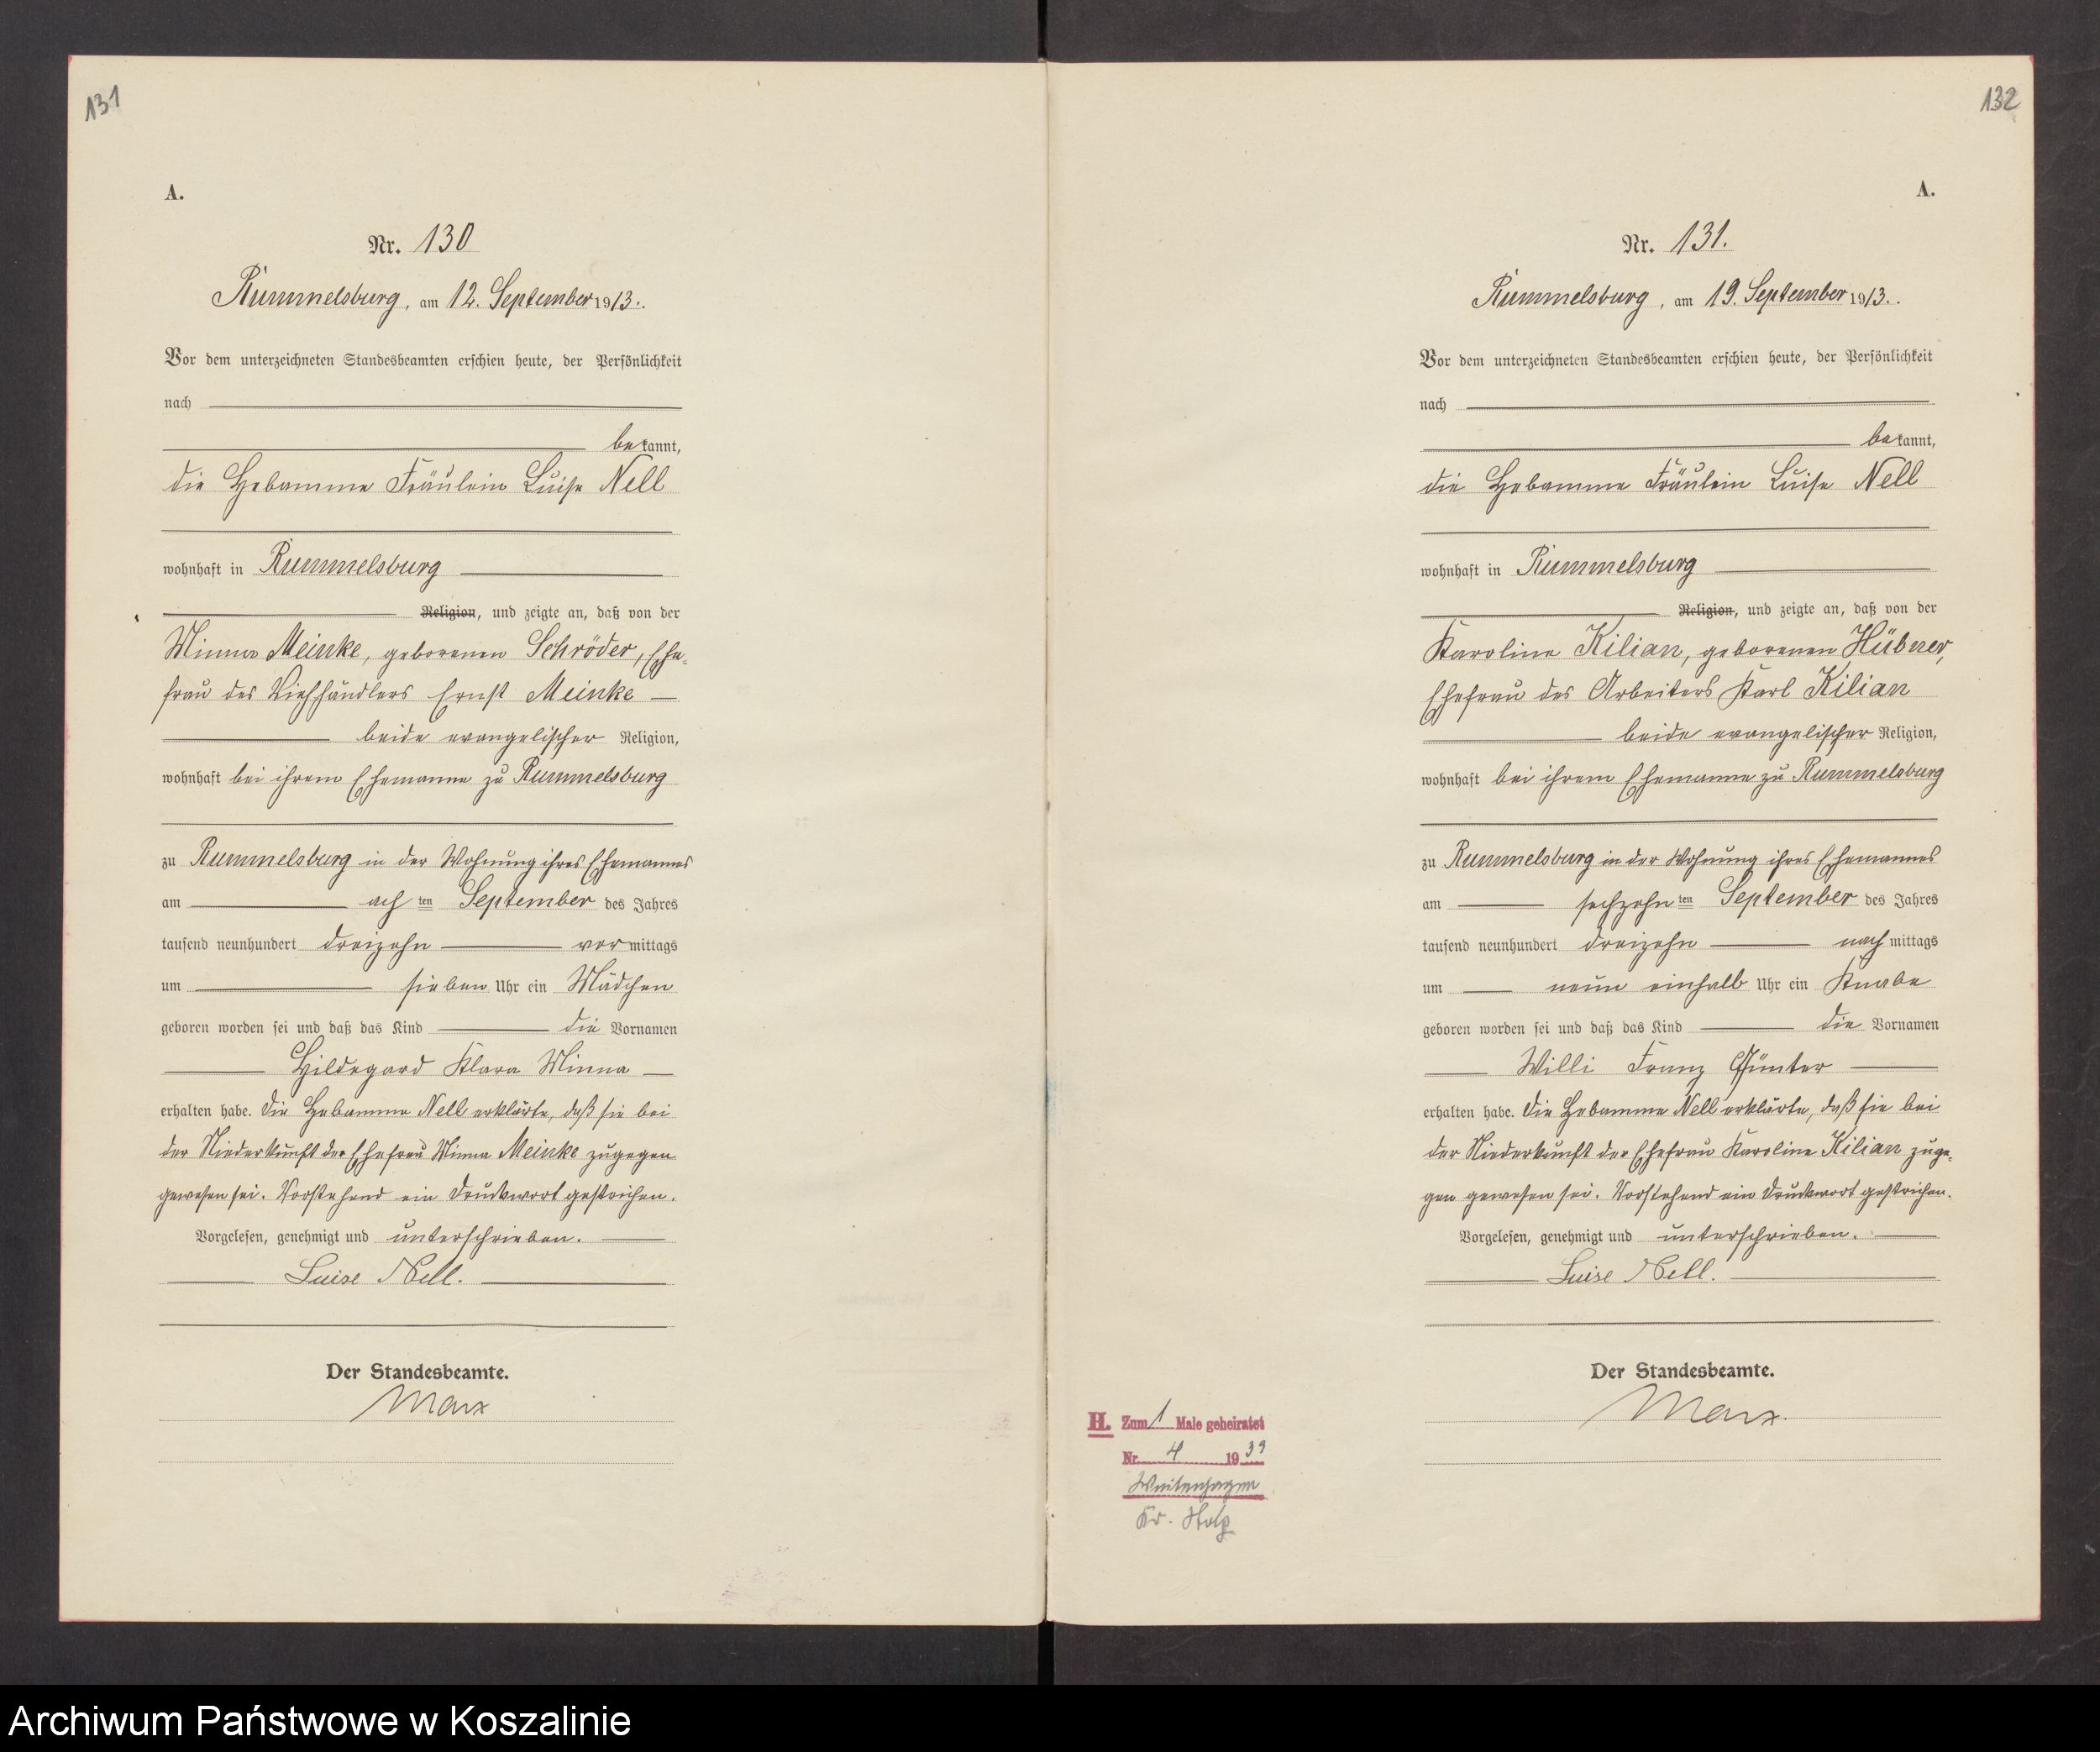 131
A.
Nr. 130
Rummelsburg, am 12. September 1913.
Vor dem unterzeichneten Standesbeamten erschien heute, der Persönlichkeit
nach
bekannt,
die Hebamme Fräulein Luise Nell
wohnhaft in Rummelsburg
Religion, und zeigte an, daß von der
Minna Meinke, geborenen Schröder, Ehe-
frau des Viehhändlers Ernst Meinke
beide evangelischer Religion,
wohnhaft bei ihrem Ehemanne zu Rummelsburg
zu Rummelsburg in der Wohnung ihres Ehemannes
am achten September des Jahres
tausend neunhundert dreizehn vormittags
um sieben Uhr ein Mädchen
geboren worden sei und daß das Kind die Vornamen
Hildegard Klara Minna
erhalten habe. Die Hebamme Nell erklärte, daß sie bei
der Niederkunft der Ehefrau Minna Meinke zugegen
gewesen sei. Vorstehend ein Druckwort gestrichen.
Vorgelesen, genehmigt und unterschrieben.
Luise Nell.
Der Standesbeamte.
Marx
132
A.
Nr. 131.
Rummelsburg, am 19. September 1913.
Vor dem unterzeichneten Standesbeamten erschien heute, der Persönlichkeit
nach
bekannt,
die Hebamme Fräulein Luise Nell
wohnhaft in Rummelsburg
Religion, und zeigte an, daß von der
Karoline Kilian, geborenen Hübner,
Ehefrau des Arbeiters Karl Kilian
beide evangelischer Religion,
wohnhaft bei ihrem Ehemanne zu Rummelsburg
zu Rummelsburg in der Wohnung ihres Ehemannes
am sechzehnten September des Jahres
tausend neunhundert dreizehn nachmittags
um neun einhalb Uhr ein Knabe
geboren worden sei und daß das Kind die Vornamen
Willi Franz Günter
erhalten habe. Die Hebamme Nell erklärte, daß sie bei
der Niederkunft der Ehefrau Karoline Kilian zuge-
gen gewesen sei. Vorstehend ein Druckwort gestrichen.
Vorgelesen, genehmigt und unterschrieben.
Luise Nell.
Der Standesbeamte.
Marx.
H. Zum 1 Male geheiratet
Nr. 4 1939
Weitenhagen
Kr. Stolp
Archiwum Państwowe w Koszalinie